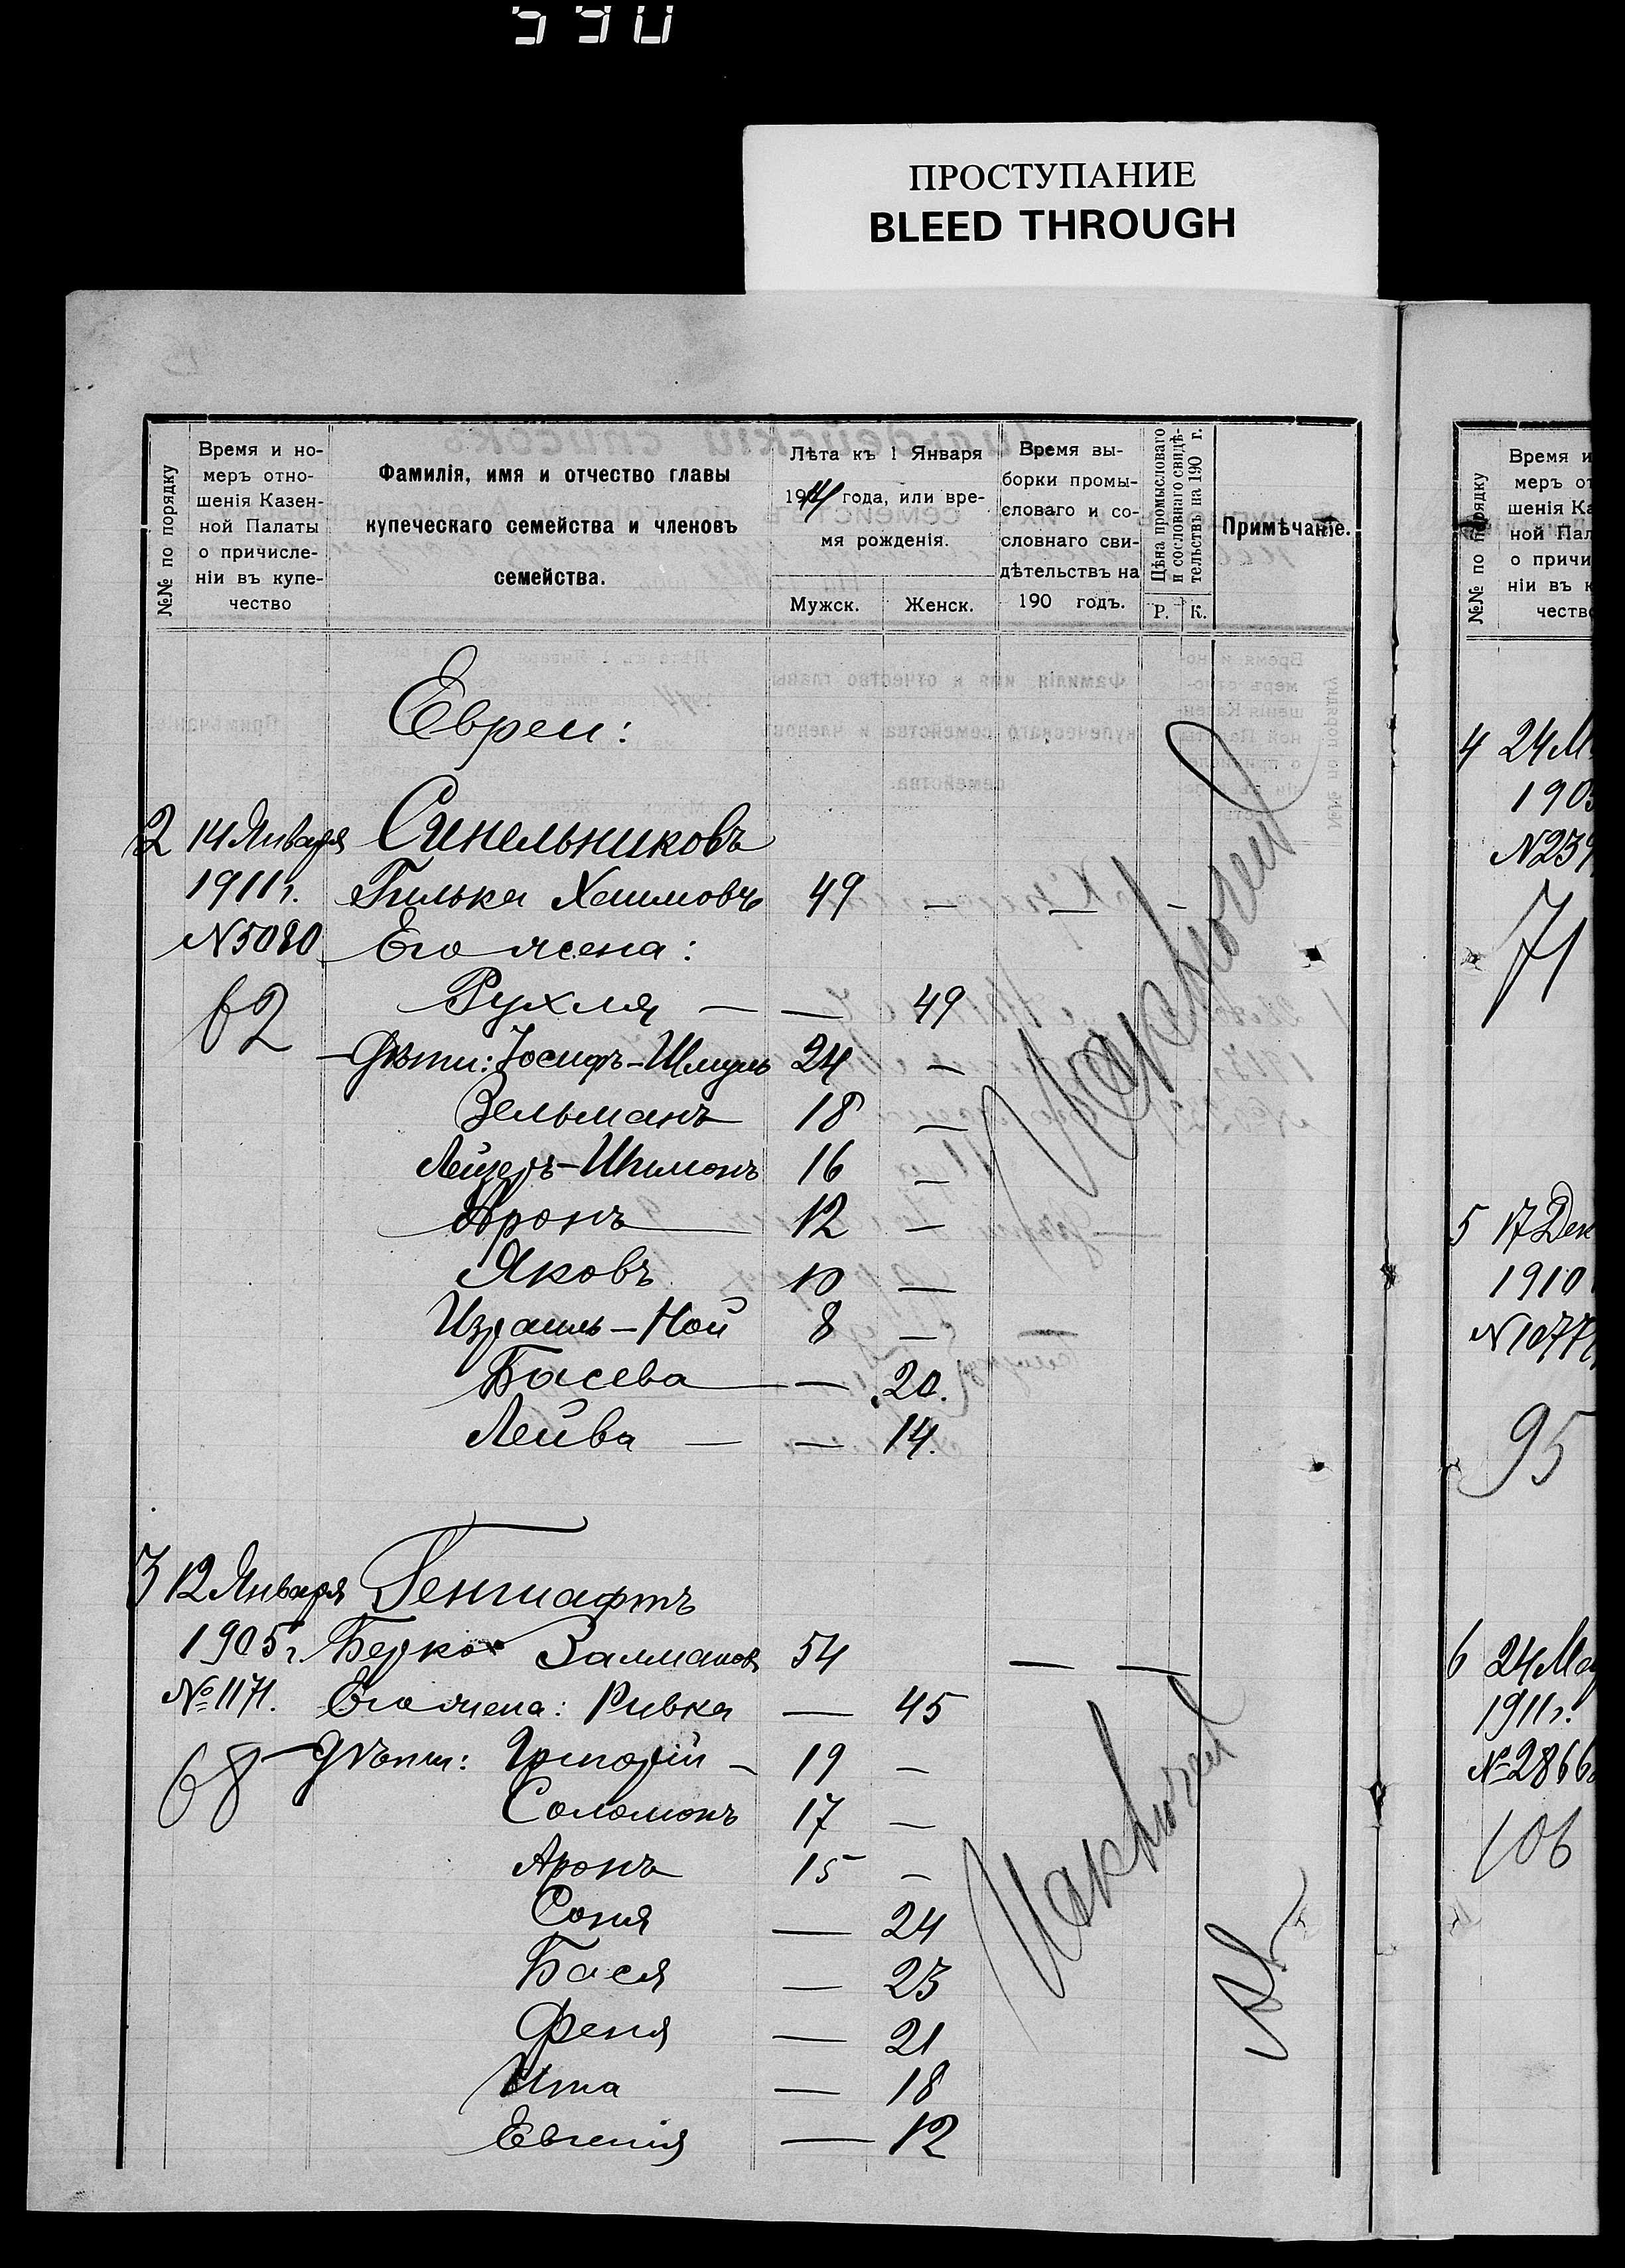 590
ПРОСТУПАНИЕ
BLEED THROUGH
№№ по порядку
Время и но-
меръ отно-
шенія Казен-
ной Палаты
о причисле-
ніи въ купе-
чество
Фамилія, имя и отчество главы
купеческаго семейства и членовъ
семейства.
Лѣта къ 1 Января
1914 года, или вре-
мя рожденія.
Мужск. Женск.
Время вы-
борки промы-
словаго и со-
словнаго сви-
дѣтельствъ на
190 годъ.
Цѣна промысловаго
и сословнаго свидѣ-
тельствъ на 190 г.
Р. К.
Примѣчаніе.
Евреи:
2 14 Января Синельниковъ
1911 г. Гилька Хаимовъ 49 — — —
N 5080 Его жена:
62 Рухля — — 49
Дѣти: Іосифъ-Шмуль 24 —
Зельманъ 18 —
Лейзеръ-Шимонъ 16 —
Аронъ 12 —
Яковъ 10 —
Израиль-Ной 8 —
Басева — 20.
Лейва — — 14.
Исключен
3 12 Января Геншафтъ
1905 г. Берко Залмановъ 54 — —
№ 1171. Его жена: Ривка — 45
68 Дѣти: Григорій — 19 —
Соломонъ 17 —
Аронъ 15 —
Соня — 24
Бася — 23
Феня — 21
Ита — 18
Евгенія — 12
Исключен
№№ по порядку
Время и
меръ от
шенія Ка
ной Пал
о причи
ніи въ к
чество
4 24 М
190
N 239
71
5 17 Дек
1910
N 1077
95
6 24 Ма
1911 г.
№ 2866
106